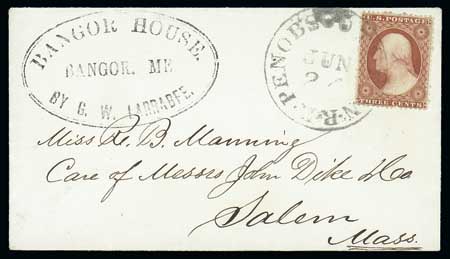 BANGOR HOUSE.
BANGOR. ME
BY G. W. LARRABEE.
PENOBS
N.R.
JUN
U.S. POSTAGE
THREE CENTS
Miss Re. B. Manning
Care of Messrs John Dike & Co
Salem
Mass.